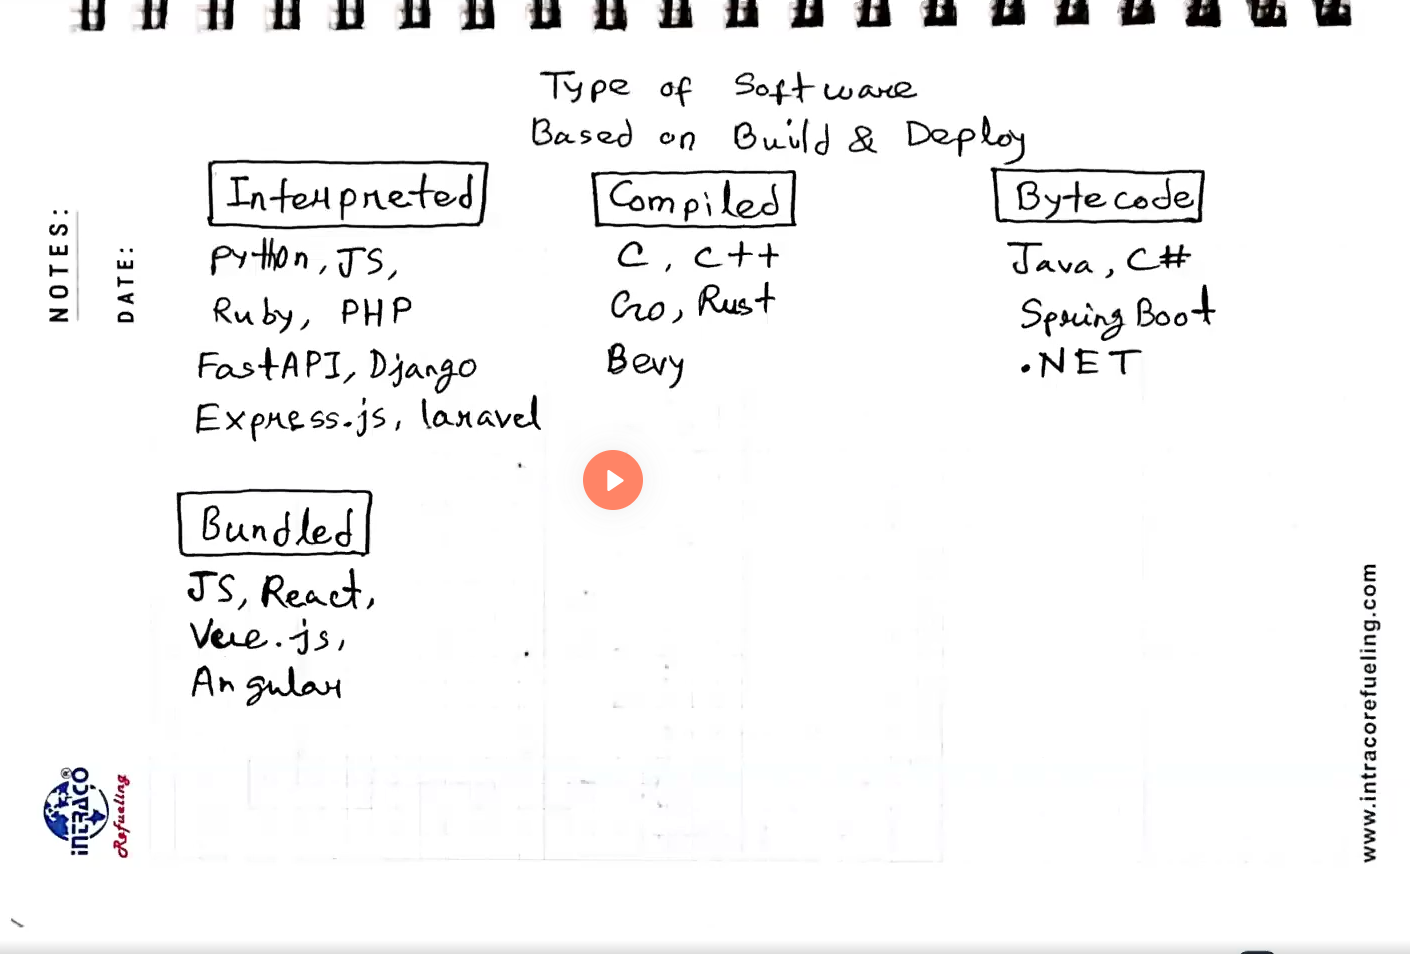 Type of Software
Based on Build & Deploy
Interpreted
Python, JS,
Ruby, PHP
FastAPI, Django
Express.js, laravel
Compiled
C, C++
Go, Rust
Bevy
Bytecode
Java, C#
Spring Boot
.NET
Bundled
JS, React,
Vue.js,
Angular
NOTES:
DATE:
INTRACO®
Refueling
www.intracorefueling.com